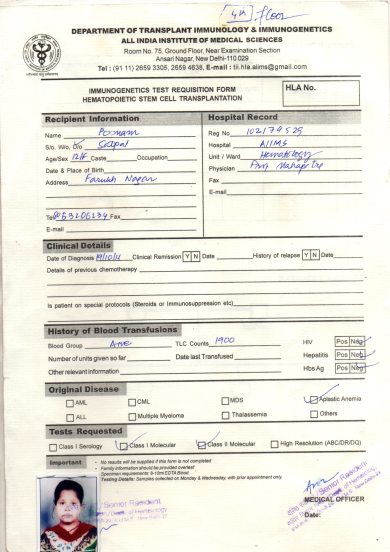 4th floor
DEPARTMENT OF TRANSPLANT IMMUNOLOGY & IMMUNOGENETICS
ALL INDIA INSTITUTE OF MEDICAL SCIENCES
Room No. 75, Ground Floor, Near Examination Section
Ansari Nagar, New Delhi-110 029
Tel : (91 11) 2659 3305, 2659 4638, E-mail : tii.hla.aiims@gmail.com
IMMUNOGENETICS TEST REQUISITION FORM
HEMATOPOIETIC STEM CELL TRANSPLANTATION
HLA No.
Recipient Information
Name Poonam
S/o, W/o, D/o
Age/Sex 12/F Caste Occupation
Date & Place of Birth
Address Farukh Nagar
Tel Fax
E-mail
Hospital Record
Reg No 102179529
Hospital AIIMS
Unit / Ward Hematology
Physician Prof Mahapatra
Fax
E-mail
Clinical Details
Date of Diagnosis Clinical Remission Y N Date History of relapse Y N Date
Details of previous chemotherapy
Is patient on special protocols (Steroids or Immunosuppression etc)
History of Blood Transfusions
Blood Group A+ve TLC Counts 1900 HIV Pos Neg
Number of units given so far Date last Transfused Hepatitis Pos Neg
Other relevant information Hbs Ag Pos Neg
Original Disease
AML CML MDS Aplastic Anemia
ALL Multiple Myeloma Thalassemia Others
Tests Requested
Class I Serology Class I Molecular Class II Molecular High Resolution (ABC/DR/DQ)
Important
- No results will be supplied if this form is not completed
- Family information should be provided overleaf
Specimen requirements: 8-10ml EDTA Blood.
Testing Details: Samples collected on Monday & Wednesday, with prior appointment only.
Senior Resident
Dept. of Hematology
MEDICAL OFFICER
Date:
Senior Resident
Dept. of Hematology